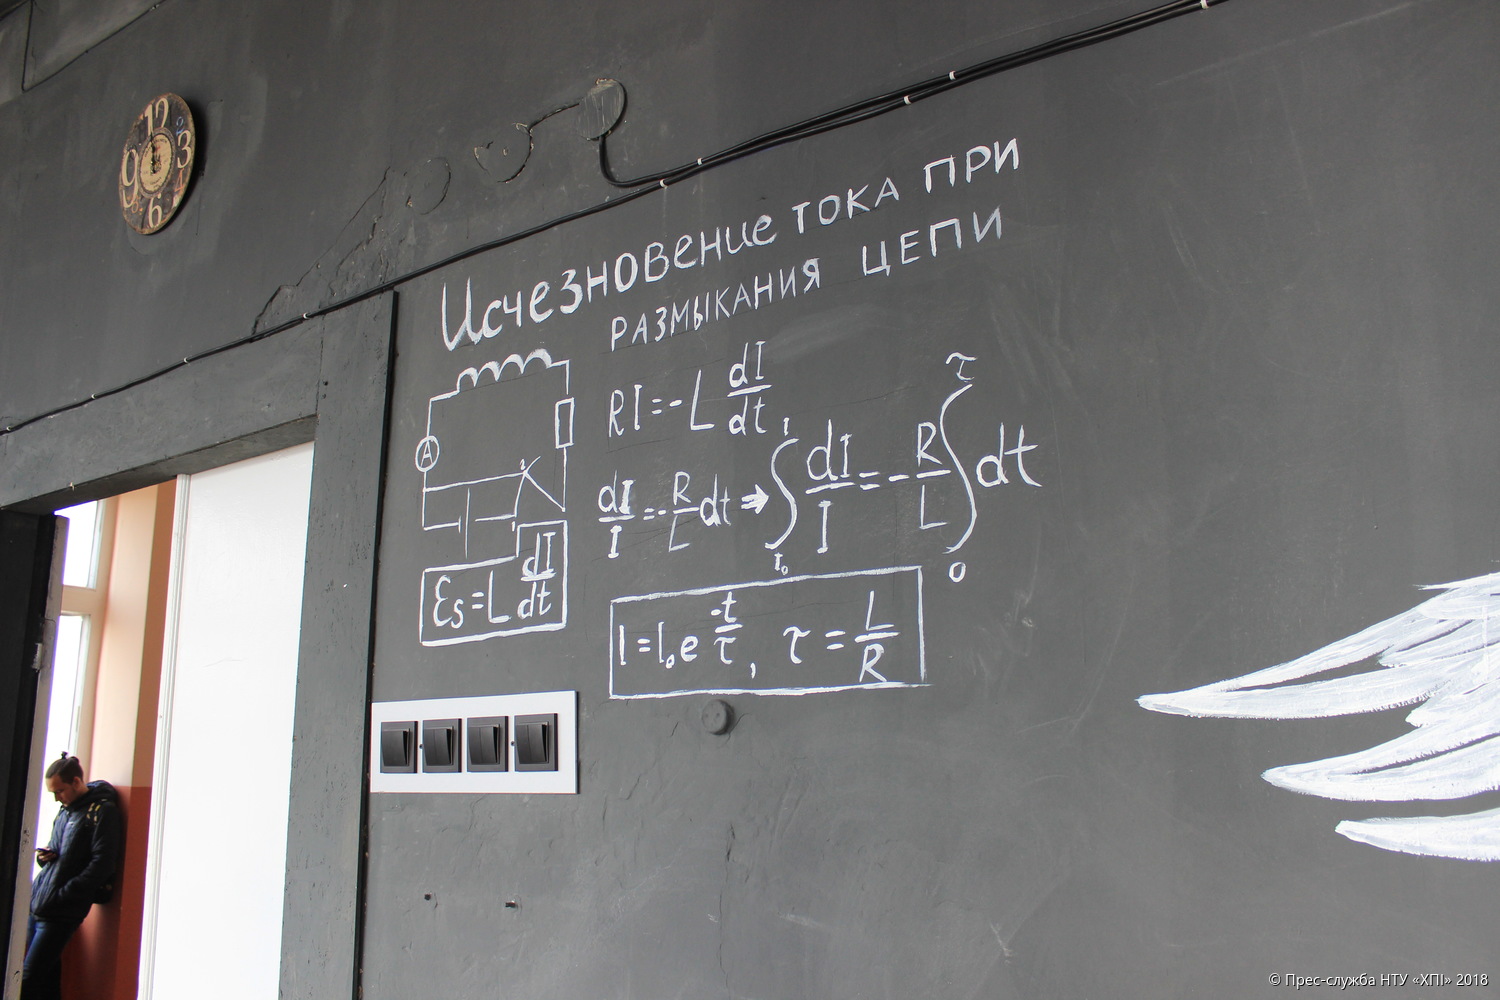 12
2
3
4
6
9
Исчезновение тока при
размыкания цепи
A
RI = -L dI/dt
dI/I = -R/L dt ⇒ ∫_{I₀}^{I} dI/I = -R/L ∫_0^τ dt
Ɛs = L dI/dt
I = I₀ e^{-t/τ}, τ = L/R
© Прес-служба НТУ «ХПІ» 2018